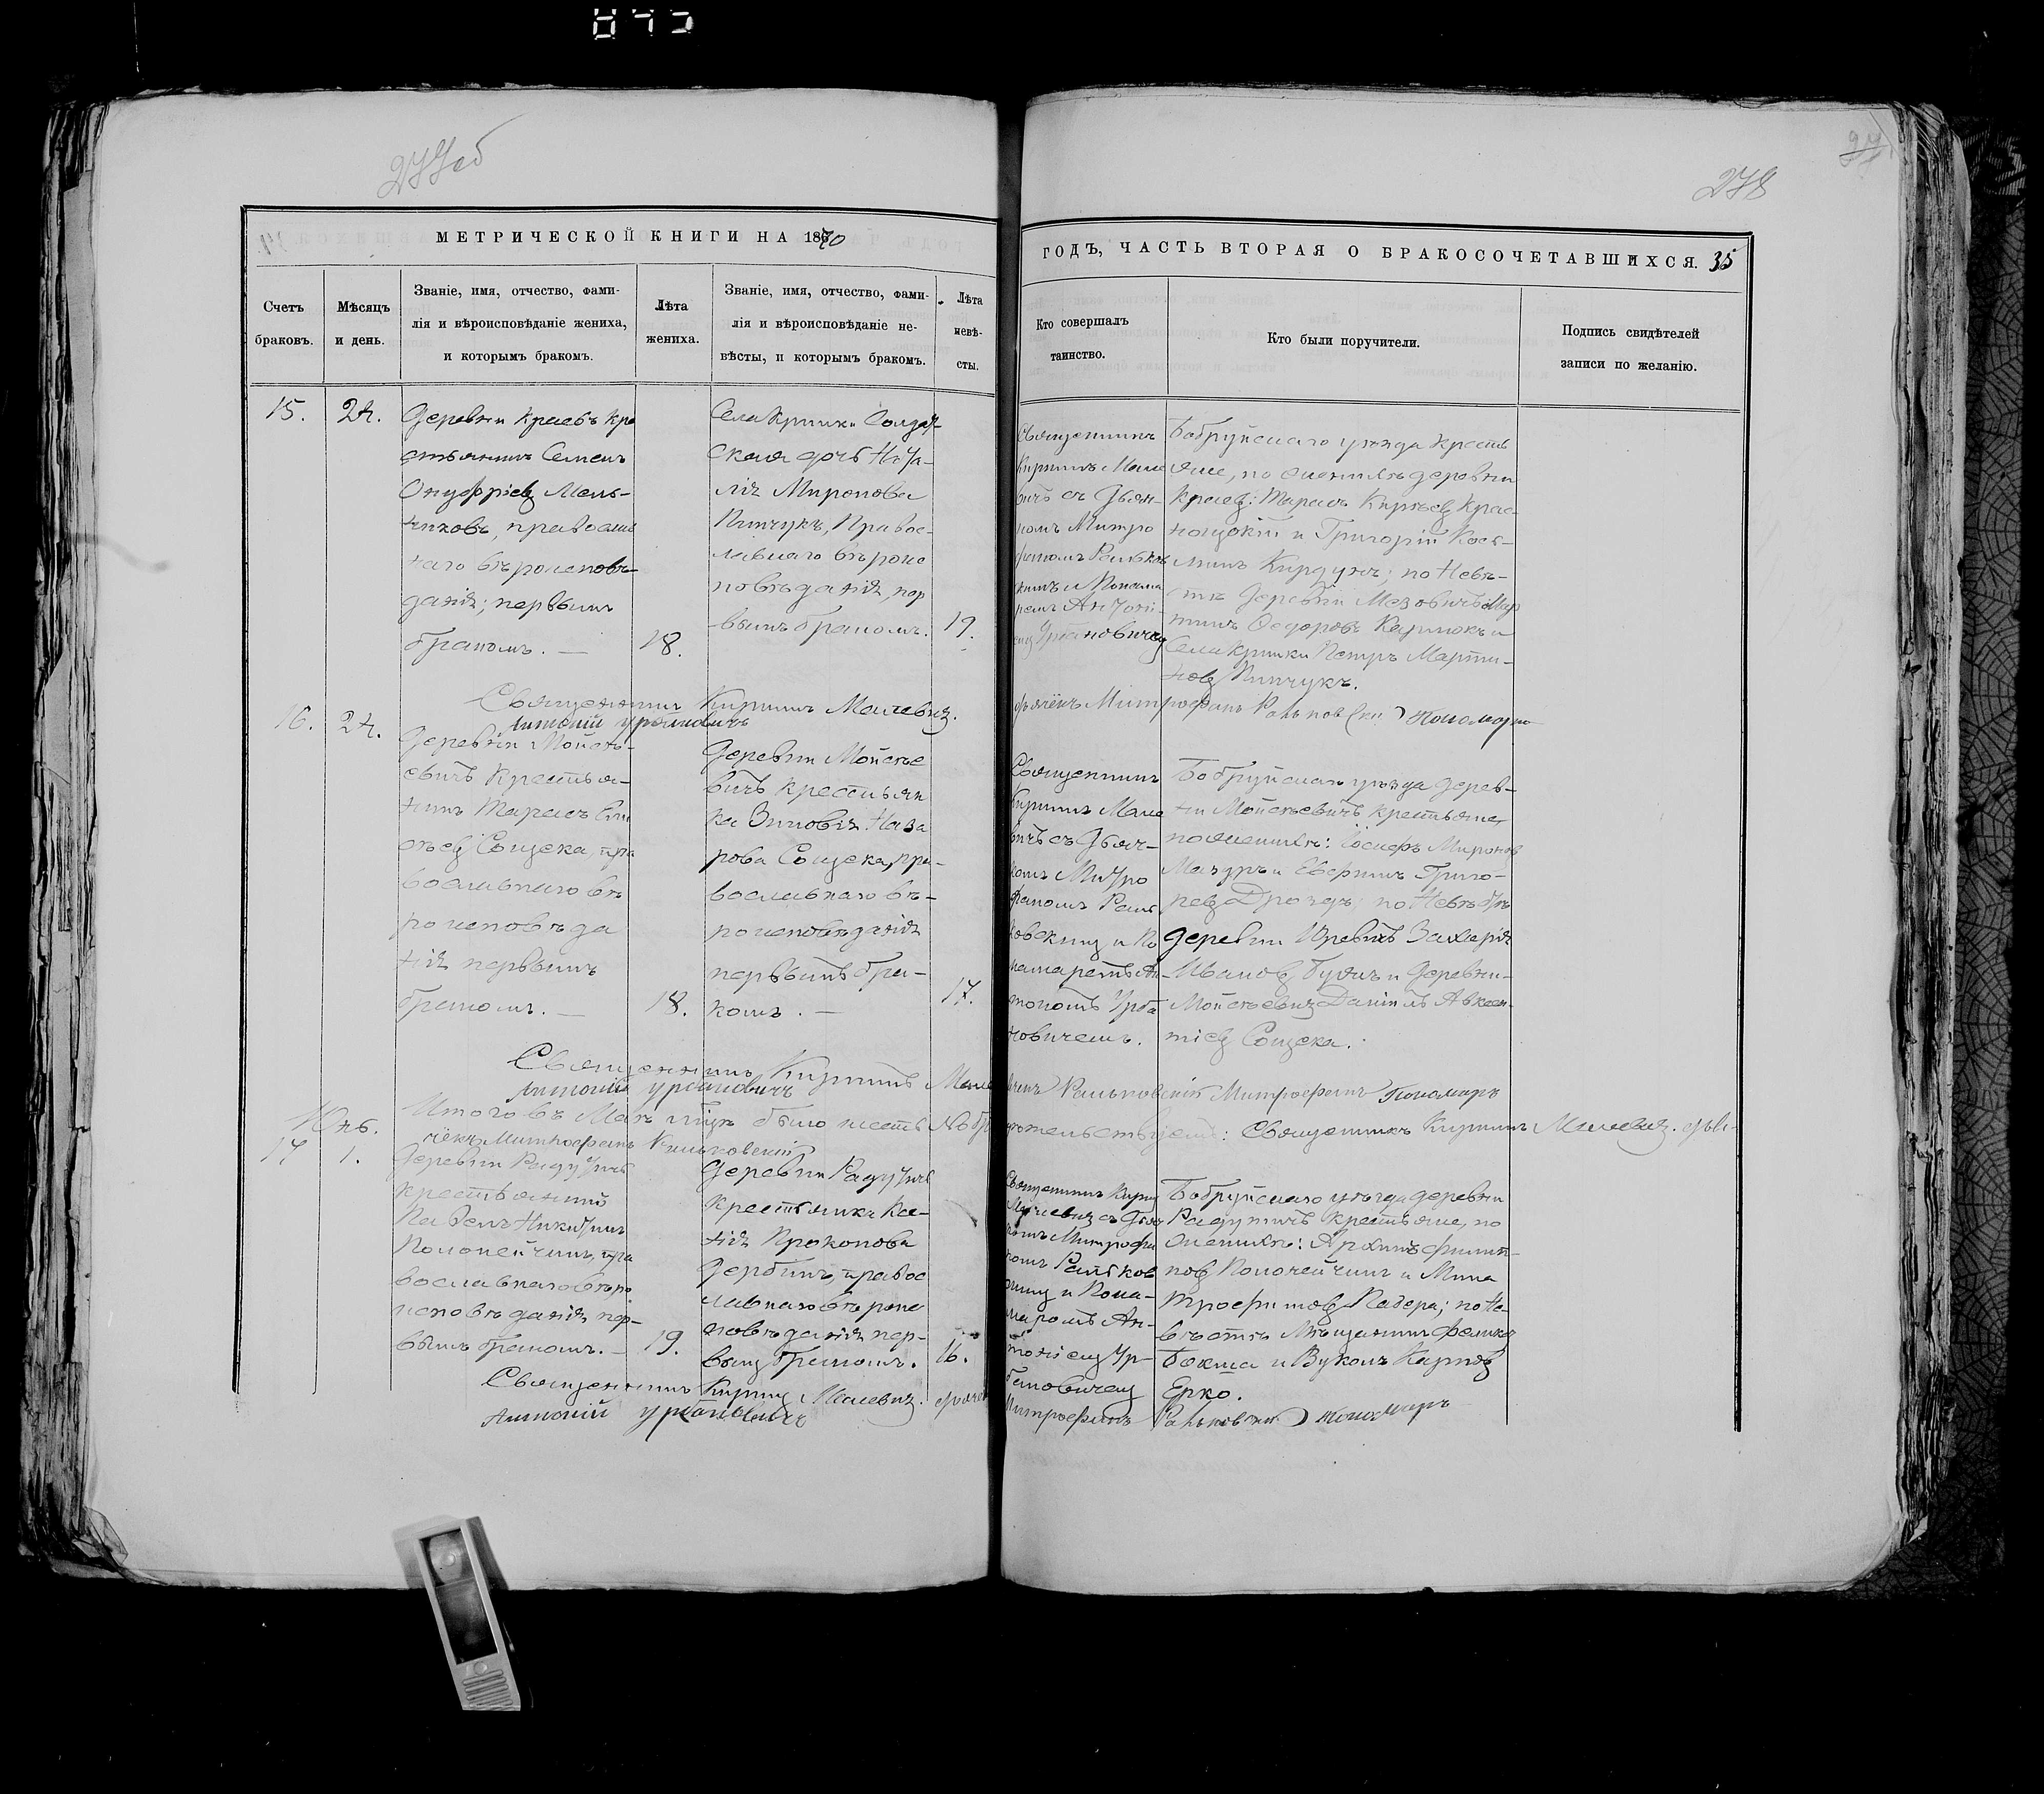 277об
278
МЕТРИЧЕСКОЙ КНИГИ НА 1870
ГОДЪ, ЧАСТЬ ВТОРАЯ О БРАКОСОЧЕТАВШИХСЯ. 35
Счетъ
браковъ.
Мѣсяцъ
и день.
Званіе, имя, отчество, фами-
лія и вѣроисповѣданіе жениха,
и которымъ бракомъ.
Лѣта
жениха.
Званіе, имя, отчество, фами-
лія и вѣроисповѣданіе не-
вѣсты, и которымъ бракомъ.
Лѣта
невѣ-
сты.
Кто совершалъ
таинство.
Кто были поручители.
Подпись свидѣтелей
записи по желанію.
15.
24.
Деревни Краевъ кре
стьянинъ Семенъ
Онуфріевъ Мель-
никовъ, православ
наго вѣроисповѣ-
данія; первымъ
бракомъ. —
18.
Села Кринки Солдат-
ская дочь Ната-
лія Миронова
Пинчукъ, Правос-
лавнаго вѣроис
повѣданія, пер
вымъ бракомъ.
19.
Священникъ
Кириллъ Мале
вичъ съ Дьяч-
комъ Митро
фаномъ Ральков
скимъ и Понама
ремъ Антоні-
емъ Урбановичемъ
Бобруйскаго уѣзда кресть
яне, по женихѣ деревни
Краевъ: Тарасъ
и Григорій Кось-
минъ Кирдунъ; по Невѣ-
стѣ деревни
Ѳедоровъ и
Села Кринки Петръ Марти-
новъ Пинчукъ.
Священникъ Кириллъ Малевичъ. дьячёкъ Митрофанъ Ральковскій Пономарь
Антоній Урбановичъ
16.
24.
Деревни Мойсѣ-
евичъ Крестья-
нинъ Тарасъ
Сыщека, пра
вославнаго вѣ
роисповѣда
нія первымъ
бракомъ. —
18.
Деревни Мойсѣе
вичъ крестьян
ка Зиновія Наза
рова Сыщека, пра-
вославнаго вѣ-
роисповѣданія
первымъ бра-
комъ. —
17.
Священникъ
Кириллъ Мале
вичъ съ Дьяч-
комъ Митро
фаномъ Раль
ковскимъ и По
намаремъ Ан-
тономъ Урба
новичемъ.
Бобруйскаго уѣзда дерев-
ни Мойсѣевичъ крестьяне,
по женихѣ: Іосифъ Мироновъ
Мазуръ и Григо-
ревъ Дроздъ; по Невѣстѣ
деревни Захарія
Ивановъ и деревни-
Мойсѣевичъ Даніилъ Авксен-
тіевъ Сыщека.
Священникъ Кириллъ Малевичъ Ральковскій Митрофанъ Пономарь
Антоній Урбановичъ
Итого въ Маѣ было шесть Священникъ Кириллъ Малевичъ. дья-
чекъ Митрофанъ Ральковскій
Юнь.
17
1.
Деревни Радутичъ
Крестьянинъ
Павелъ Никитинъ
пра
вославнаго вѣро
исповѣданія пер-
вымъ бракомъ. —
19.
Деревни Радутичъ
Крестьянка Ксе-
нія Прокопова
Дербинъ, правос
лавнаго вѣроис
повѣданія пер-
вымъ бракомъ.
16.
Священникъ Кирил
Малевичъ съ Дьяч
комъ Митрофа
номъ Ральков
скимъ и Пона-
маромъ Ан-
тоніемъ Ур-
бановичемъ
Бобруйскаго уѣзда деревни
Радутичъ Крестьяне, по
женихѣ: Архипъ Филип-
повъ и Мина
Трофимовъ Падера; по Не-
вѣстѣ Мѣщанинъ Феликсъ
Бокша и Вуколъ Карповъ
Ерко.
Священникъ Кириллъ Малевичъ. дьячек Митрофанъ Ральковскій Пономарь
Антоній Урбановичъ